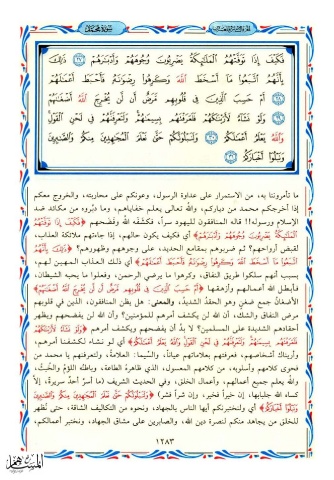 سورة محمد
فَكَيْفَ إِذَا تَوَفَّتْهُمُ الْمَلَائِكَةُ يَضْرِبُونَ وُجُوهَهُمْ وَأَدْبَارَهُمْ ﴿٢٧﴾ ذَلِكَ
بِأَنَّهُمُ اتَّبَعُوا مَا أَسْخَطَ اللَّهَ وَكَرِهُوا رِضْوَانَهُ فَأَحْبَطَ أَعْمَالَهُمْ
﴿٢٨﴾ أَمْ حَسِبَ الَّذِينَ فِي قُلُوبِهِم مَّرَضٌ أَن لَّن يُخْرِجَ اللَّهُ أَضْغَانَهُمْ
﴿٢٩﴾ وَلَوْ نَشَاءُ لَأَرَيْنَاكَهُمْ فَلَعَرَفْتَهُم بِسِيمَاهُمْ وَلَتَعْرِفَنَّهُمْ فِي لَحْنِ الْقَوْلِ
وَاللَّهُ يَعْلَمُ أَعْمَالَكُمْ ﴿٣٠﴾ وَلَنَبْلُوَنَّكُمْ حَتَّى نَعْلَمَ الْمُجَاهِدِينَ مِنكُمْ وَالصَّابِرِينَ
وَنَبْلُوَ أَخْبَارَكُمْ ﴿٣١﴾
ما تأمروننا به، من الاستمرار على عداوة الرسول، وعونكم على محاربته، والخروج معكم
إذا أخرجكم محمد من دياركم، والله تعالى يعلم خفاياهم، وما دبّروه من مكائد ضد
الإسلام ورسوله!! قاله المنافقون لليهود سراً، فكشفه الله وفضحهم ﴿فَكَيْفَ إِذَا تَوَفَّتْهُمُ
الْمَلَائِكَةُ يَضْرِبُونَ وُجُوهَهُمْ وَأَدْبَارَهُمْ﴾ أي فكيف يكون حالهم، إذا جاءتهم ملائكة العذاب،
لقبض أرواحهم؟ ثم ضربوهم بمقامع الحديد، على وجوههم وظهورهم؟ ﴿ذَلِكَ بِأَنَّهُمُ
اتَّبَعُوا مَا أَسْخَطَ اللَّهَ وَكَرِهُوا رِضْوَانَهُ فَأَحْبَطَ أَعْمَالَهُمْ﴾ أي ذلك العذاب المهين لهم،
بسبب أنهم سلكوا طريق النفاق، وكرهوا ما يرضي الرحمن، وفعلوا ما يحبه الشيطان،
فأبطل الله أعمالهم وأزهقها ﴿أَمْ حَسِبَ الَّذِينَ فِي قُلُوبِهِم مَّرَضٌ أَن لَّن يُخْرِجَ اللَّهُ أَضْغَانَهُمْ﴾
الأضغانُ جمع ضغن وهو الحقدُ الشديدُ، والمعنى: هل يظن المنافقون، الذين في قلوبهم
مرض النفاق والشك، أن الله لن يكشف أمرهم للمؤمنين؟ وأن الله لن يفضحهم ويظهر
أحقادهم الشديدة على المسلمين؟ لا بدَّ أن يفضحهم ويكشف أمرهم ﴿وَلَوْ نَشَاءُ لَأَرَيْنَاكَهُمْ
فَلَعَرَفْتَهُم بِسِيمَاهُمْ وَلَتَعْرِفَنَّهُمْ فِي لَحْنِ الْقَوْلِ وَاللَّهُ يَعْلَمُ أَعْمَالَكُمْ﴾ أي لو نشاء لكشفنا أمرهم،
وأريناك أشخاصهم، فعرفتهم بعلاماتهم عياناً، والسِّيما: العلامةُ، ولتعرفنهم يا محمد من
فحوى كلامهم وأسلوبه، من كلامهم المعسول، الذي ظاهرهُ الطاعة، وباطنُه اللؤمُ والخبثُ،
والله يعلم جميع أعمالهم، وأعمال الخلق، وفي الحديث الشريف (ما أسرَّ أحدٌ سريرةً، إلاَّ
كساه الله جلبابها، إن خيراً فخير، وإن شراً فشر) ﴿وَلَنَبْلُوَنَّكُمْ حَتَّى نَعْلَمَ الْمُجَاهِدِينَ مِنكُمْ وَالصَّابِرِينَ
وَنَبْلُوَ أَخْبَارَكُمْ﴾ أي ولنختبرنكم أيها الناس بالجهاد، ونحوه من التكاليف الشاقة، حتى نُظهر
للخلق من يجاهد منكم لنصرة دين الله، والصابرين على مشاق الجهاد، ونختبر أعمالكم،
١٢٨٣